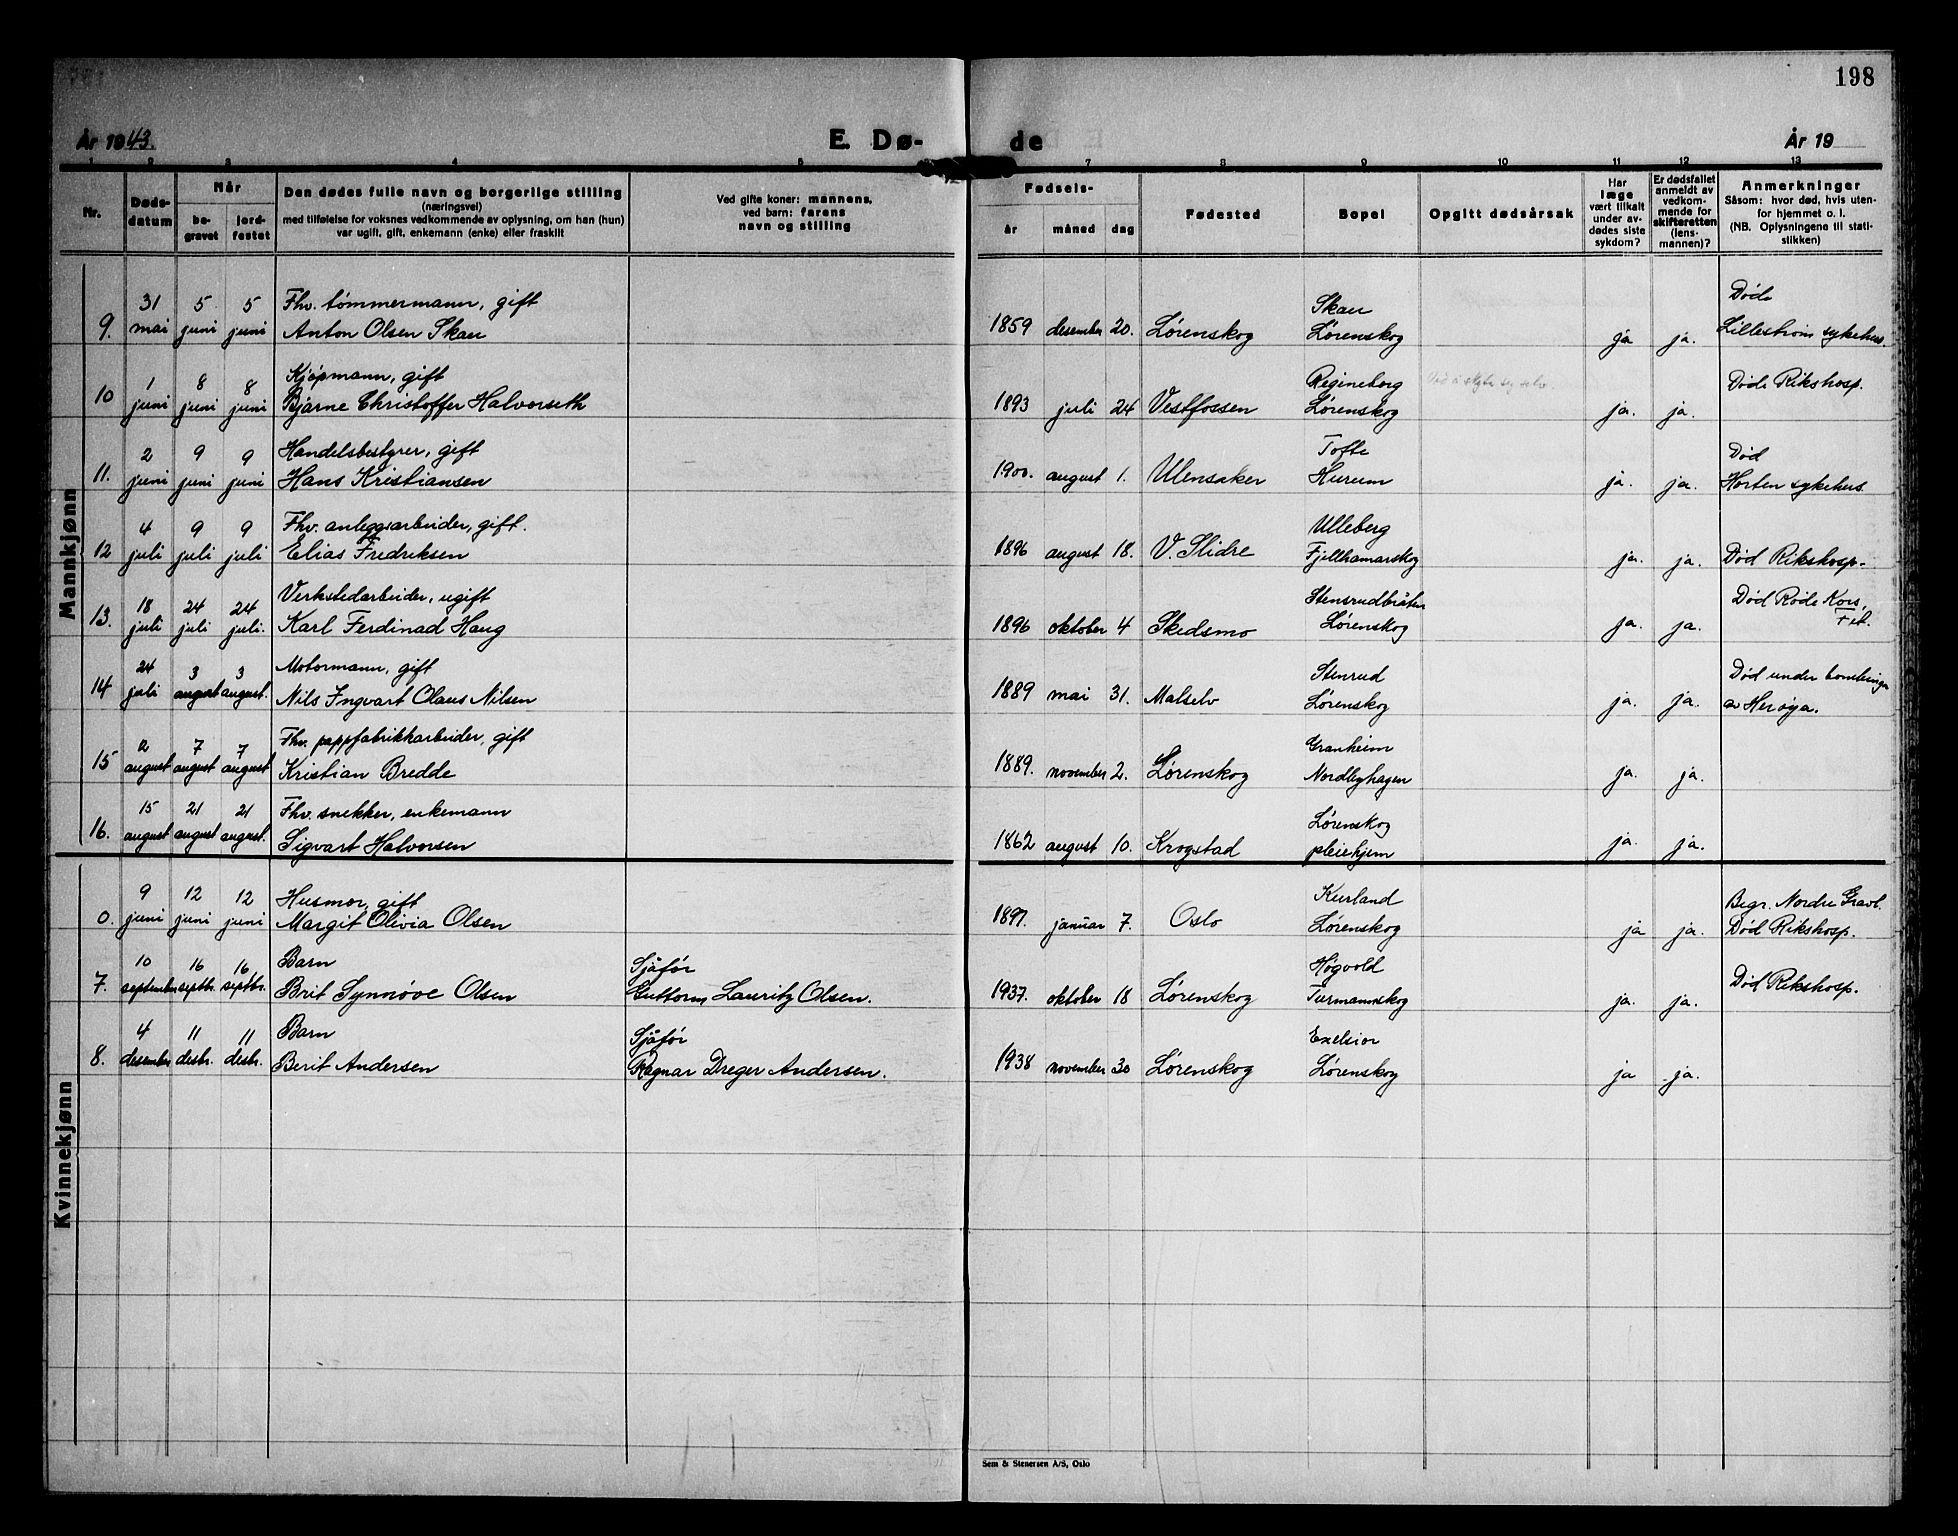 198
År 1943.
E. Dø-
de
År 19
1 2 3 4 5
7 8 9 10 11 12 13
Nr.
Døds-
datum
Når
be-
gravet
jord-
festet
Den dødes fulle navn og borgerlige stilling
(næringsvei)
med tilføielse for voksnes vedkommende av oplysning, om han (hun)
var ugift, gift, enkemann (enke) eller fraskilt
Ved gifte koner: mannens,
ved barn: farens
navn og stilling
Fødsels-
år måned dag
Fødested
Bopel
Opgitt dødsårsak
Har
læge
vært tilkalt
under av-
dødes siste
sykdom?
Er dødsfallet
anmeldt av
vedkom-
mende for
skifteretten
(lens-
mannen)?
Anmerkninger
Såsom: hvor død, hvis uten-
for hjemmet o. l.
(NB. Oplysningene til stati-
stikken)
Mannkjønn
31 5 5 Fhv. tømmermann, gift Skau Døde
9. mai juni juni Anton Olsen Skau 1859 desember 20. Lørenskog Lørenskog ja ja. Lillestrøm sykehus.
1 8 8 Kjøpmann, gift Regineborg Døde Rikshosp.
10 juni juni juni Bjarne Christoffer Halvorseth 1893 juli 24 Vestfossen Lørenskog Ved å skyte seg selv. ja. ja.
2 9 9 Handelsbestyrer, gift Tofte Død
11. juni juni juni Hans Kristiansen 1900. august 1. Ulensaker Hurum ja. ja. Horten sykehus
4 9 9 Fhv. anleggsarbeider, gift. Ulleberg
12 juli juli juli Elias Fredriksen 1896 august 18. V. Slidre Fjellhamarskog ja. ja. Død Rikshosp.
18 24 24 Verkstedarbeider, ugift Stensrudbråten Død Røde Kors,
13. juli juli juli. Karl Ferdinad Haug 1896 oktober 4 Skedsmo Lørenskog ja. ja.
24 3 3 Motormann, gift Stenrud Død under bombingen
14 juli august august. Nils Ingvart Olaus Nilsen 1889 mai 31. Malselv Lørenskog ja. ja. av Herøya.
2 7 7 Fhv. pappfabrikkarbeider, gift Granheim
15 august august august Kristian Bredde 1889. november 2. Lørenskog Nordbyhagen ja. ja.
15 21 21 Fhv. snekker, enkemann Lørenskog
16. august august august. Sigvart Halvorsen 1862 august 10. Krogstad pleiehjem ja. ja.
Kvinnekjønn
9 12 12 Husmor, gift Kurland Begr. Nordre Gravl.
0. juni juni juni Margit Olivia Olsen 1897. januar 7. Oslo Lørenskog ja ja. Død Rikshosp.
10 16 16 Barn Sjåfør Høgvold Død Rikshosp.
7. september septbr. septbr. Brit Synnøve Olsen Guttorm Lauritz Olsen. 1937. oktober 18 Lørenskog Turmannskog ja. ja.
4 11 11 Barn Sjåfør Exelsior
8. desember desbr. desbr. Berit Andersen Ragnar Dreger Andersen. 1938 november 30 Lørenskog Lørenskog ja ja.
Sem & Stenersen A/S, Oslo